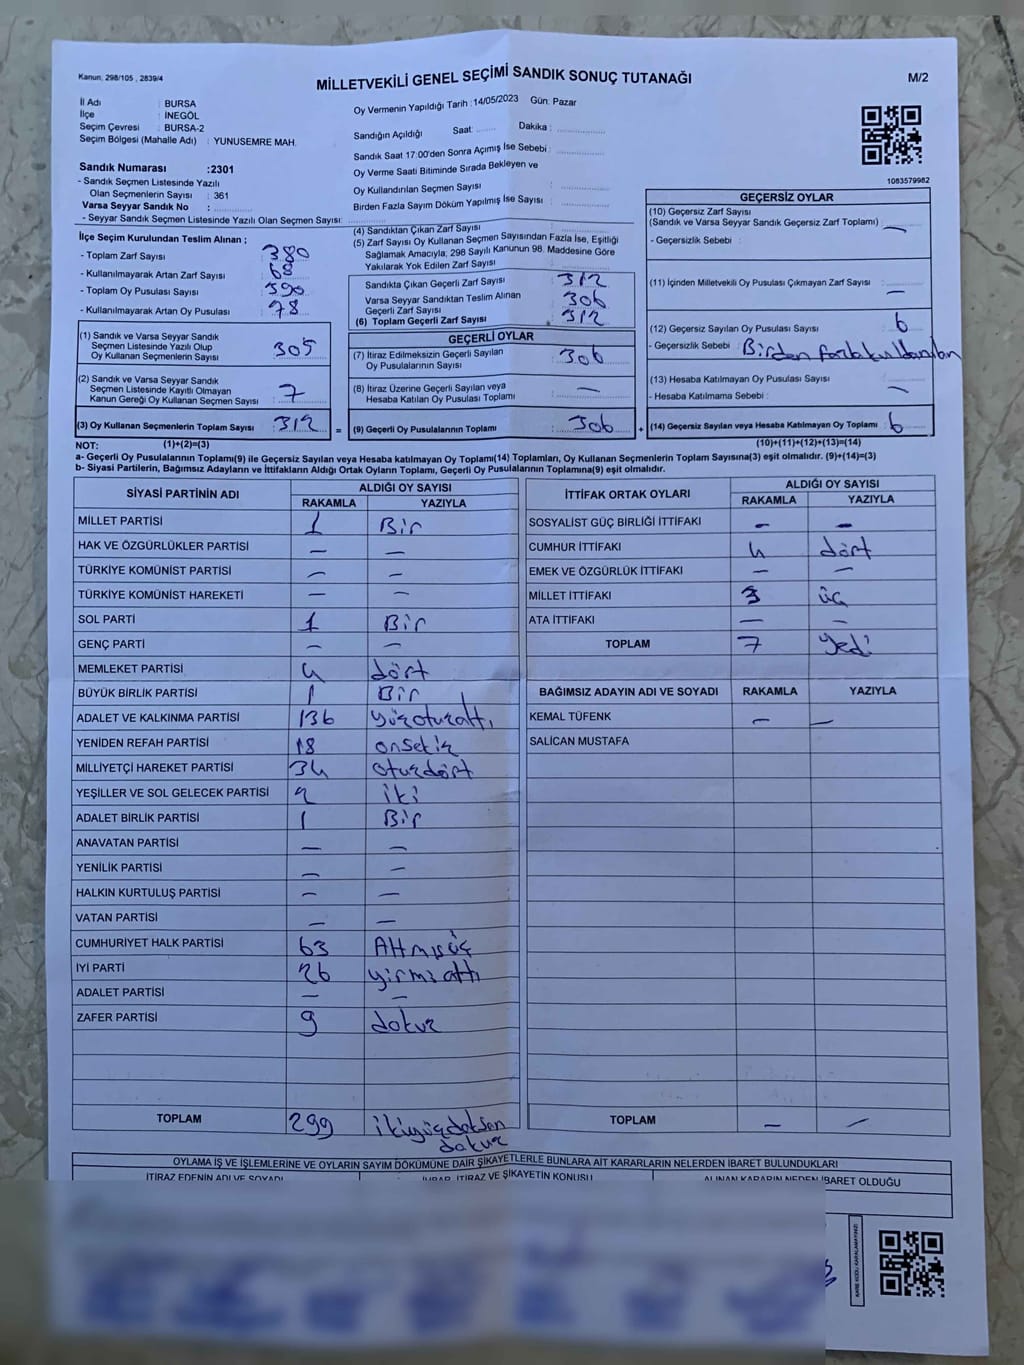 Kanun, 298/105 , 2839/4
MİLLETVEKİLİ GENEL SEÇİMİ SANDIK SONUÇ TUTANAĞI
M/2
İl Adı : BURSA
İlçe : İNEGÖL
Seçim Çevresi : BURSA-2
Seçim Bölgesi (Mahalle Adı) : YUNUSEMRE MAH.
Sandık Numarası :2301
- Sandık Seçmen Listesinde Yazılı
Olan Seçmenlerin Sayısı : 361
Varsa Seyyar Sandık No :
- Seyyar Sandık Seçmen Listesinde Yazılı Olan Seçmen Sayısı:
Oy Vermenin Yapıldığı Tarih :14/05/2023 Gün: Pazar
Sandığın Açıldığı Saat: Dakika :
Sandık Saat 17:00'den Sonra Açımış İse Sebebi :
Oy Verme Saati Bitiminde Sırada Bekleyen ve
Oy Kullandırılan Seçmen Sayısı :
Birden Fazla Sayım Döküm Yapılmış İse Sayısı :
1083579982
İlçe Seçim Kurulundan Teslim Alınan ;
- Toplam Zarf Sayısı : 380
- Kullanılmayarak Artan Zarf Sayısı : 68
- Toplam Oy Pusulası Sayısı : 390
- Kullanılmayarak Artan Oy Pusulası : 78
(1) Sandık ve Varsa Seyyar Sandık
Seçmen Listesinde Yazılı Olup
Oy Kullanan Seçmenlerin Sayısı : 305
(2) Sandık ve Varsa Seyyar Sandık
Seçmen Listesinde Kayıtlı Olmayan
Kanun Gereği Oy Kullanan Seçmen Sayısı : 7
(3) Oy Kullanan Seçmenlerin Toplam Sayısı : 312
(4) Sandıktan Çıkan Zarf Sayısı :
(5) Zarf Sayısı Oy Kullanan Seçmen Sayısından Fazla İse, Eşitliği
Sağlamak Amacıyla, 298 Sayılı Kanunun 98. Maddesine Göre
Yakılarak Yok Edilen Zarf Sayısı :
Sandıkta Çıkan Geçerli Zarf Sayısı : 312
Varsa Seyyar Sandıktan Teslim Alınan
Geçerli Zarf Sayısı : 306
(6) Toplam Geçerli Zarf Sayısı : 312
GEÇERLİ OYLAR
(7) İtiraz Edilmeksizin Geçerli Sayılan
Oy Pusulalarının Sayısı : 306
(8) İtiraz Üzerine Geçerli Sayılan veya
Hesaba Katılan Oy Pusulası Toplamı : —
= (9) Geçerli Oy Pusulalarının Toplamı : 306
GEÇERSİZ OYLAR
(10) Geçersiz Zarf Sayısı
(Sandık ve Varsa Seyyar Sandık Geçersiz Zarf Toplamı) : —
- Geçersizlik Sebebi :
(11) İçinden Milletvekili Oy Pusulası Çıkmayan Zarf Sayısı : —
(12) Geçersiz Sayılan Oy Pusulası Sayısı : 6
- Geçersizlik Sebebi : Birden fazla kullanılan
(13) Hesaba Katılmayan Oy Pusulası Sayısı : —
- Hesaba Katılmama Sebebi :
+ (14) Geçersiz Sayılan veya Hesaba Katılmayan Oy Toplamı : 6
NOT: (1)+(2)=(3) (10)+(11)+(12)+(13)=(14)
a- Geçerli Oy Pusulalarının Toplamı(9) ile Geçersiz Sayılan veya Hesaba katılmayan Oy Toplamı(14) Toplamları, Oy Kullanan Seçmenlerin Toplam Sayısına(3) eşit olmalıdır. (9)+(14)=(3)
b- Siyasi Partilerin, Bağımsız Adayların ve İttifakların Aldığı Ortak Oyların Toplamı, Geçerli Oy Pusulalarının Toplamına(9) eşit olmalıdır.
SİYASİ PARTİNİN ADI ALDIĞI OY SAYISI
RAKAMLA YAZIYLA
MİLLET PARTİSİ 1 Bir
HAK VE ÖZGÜRLÜKLER PARTİSİ — —
TÜRKİYE KOMÜNİST PARTİSİ — —
TÜRKİYE KOMÜNİST HAREKETİ — —
SOL PARTİ 1 Bir
GENÇ PARTİ — —
MEMLEKET PARTİSİ 4 dört
BÜYÜK BİRLİK PARTİSİ 1 Bir
ADALET VE KALKINMA PARTİSİ 136 yüzotuzaltı
YENİDEN REFAH PARTİSİ 18 onsekiz
MİLLİYETÇİ HAREKET PARTİSİ 34 otuzdört
YEŞİLLER VE SOL GELECEK PARTİSİ 2 iki
ADALET BİRLİK PARTİSİ 1 Bir
ANAVATAN PARTİSİ — —
YENİLİK PARTİSİ — —
HALKIN KURTULUŞ PARTİSİ — —
VATAN PARTİSİ — —
CUMHURİYET HALK PARTİSİ 63 Altmışüç
İYİ PARTİ 26 yirmialtı
ADALET PARTİSİ — —
ZAFER PARTİSİ 9 dokuz
TOPLAM 299 ikiyüzdoksan
dokuz
İTTİFAK ORTAK OYLARI ALDIĞI OY SAYISI
RAKAMLA YAZIYLA
SOSYALİST GÜÇ BİRLİĞİ İTTİFAKI — —
CUMHUR İTTİFAKI 4 dört
EMEK VE ÖZGÜRLÜK İTTİFAKI — —
MİLLET İTTİFAKI 3 üç
ATA İTTİFAKI — —
TOPLAM 7 yedi
BAĞIMSIZ ADAYIN ADI VE SOYADI RAKAMLA YAZIYLA
KEMAL TÜFENK — —
SALİCAN MUSTAFA
TOPLAM — —
OYLAMA İŞ VE İŞLEMLERİNE VE OYLARIN SAYIM DÖKÜMÜNE DAİR ŞİKAYETLERLE BUNLARA AİT KARARLARIN NELERDEN İBARET BULUNDUKLARI
İTİRAZ EDENİN ADI VE SOYADI İHBAR, İTİRAZ VE ŞİKAYETİN KONUSU ALINAN KARARIN NEDEN İBARET OLDUĞU
KARE KODU KARALAMAYINIZ!